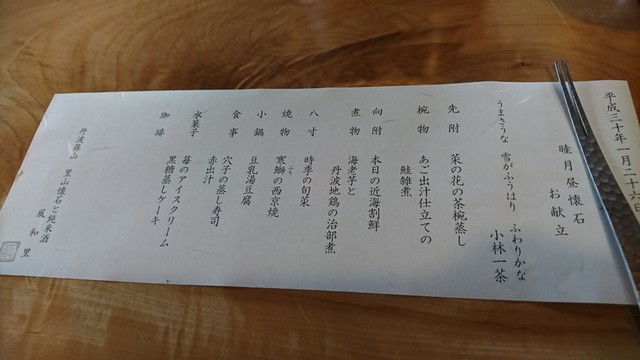 平成三十年一月二十六日
睦月昼懐石
お献立
うまさうな 雪がふうはり ふわりかな
小林一茶
先附 菜の花の茶椀蒸し
椀物 あご出汁仕立ての
鮭雑煮
向附 本日の近海割鮮
煮物 海老芋と
丹波地鶏の治部煮
八寸 時季の旬菜
焼物 寒鰤の西京焼
小鍋 豆乳湯豆腐
食事 穴子の蒸し寿司
赤出汁
水菓子 苺のアイスクリーム
黒糖蒸しケーキ
珈琲
丹波篠山 里山懐石と純米酒
風和里